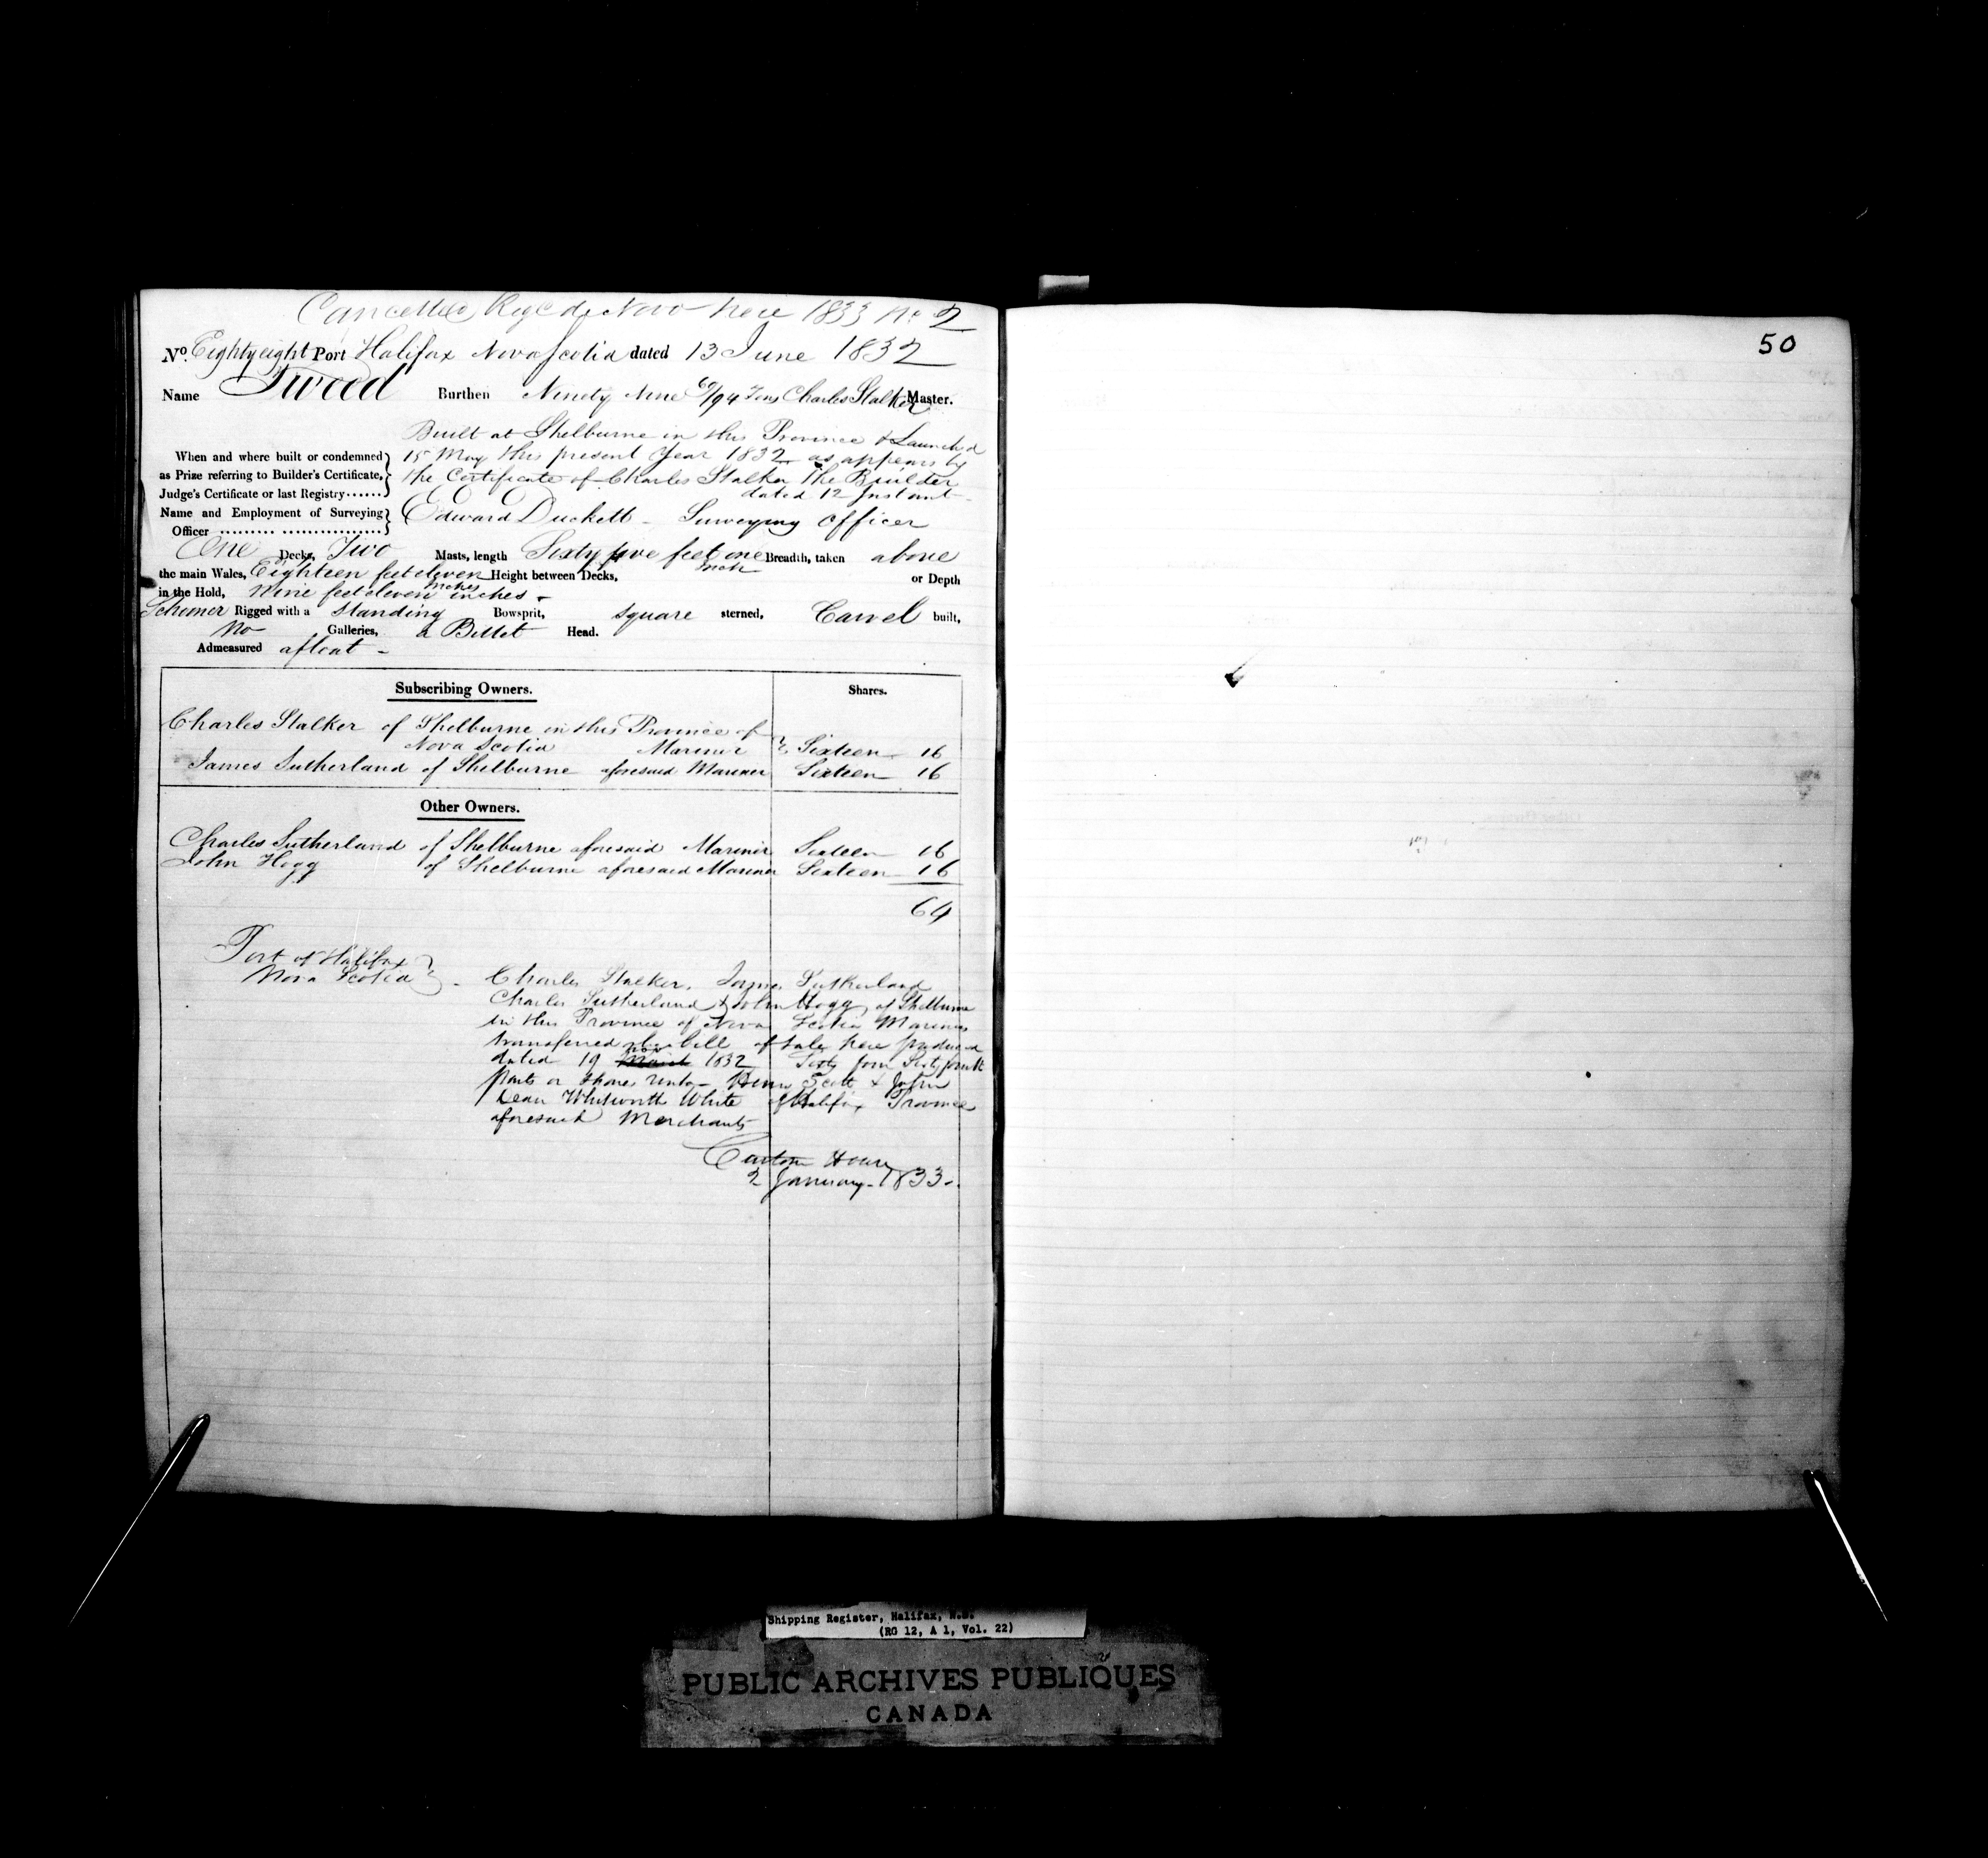 Cancelled Regd de Novo here 1833 No 2
No. Eighty eight Port Halifax Nova Scotia dated 13 June 1832
Name Tweed Burthen Ninety Nine 60/94 Tons Charles Stalker Master.
Built at Shelburne in this Province & Launched
When and where built or condemned 15 May this present Year 1832 as appears by
as Prize referring to Builder's Certificate, the Certificate of Charles Stalker the Builder
Judge's Certificate or last Registry...... dated 12 Instant
Name and Employment of Surveying Edward Duckett - Surveying Officer
Officer
One Decks, Two Masts, length Sixty five feet one Inch Breadth, taken above
the main Wales, Eighteen feet eleven Inches Height between Decks, or Depth
in the Hold, Nine feet eleven inches -
Schooner Rigged with a Standing Bowsprit, square sterned, Carvel built,
No Galleries, a Billet Head.
Admeasured afloat -
Subscribing Owners. Shares.
Charles Stalker of Shelburne in this Province of
Nova Scotia Mariner Sixteen 16
James Sutherland of Shelburne aforesaid Mariner Sixteen 16
Other Owners.
Charles Sutherland of Shelburne aforesaid Mariner Sixteen 16
John Hogg of Shelburne aforesaid Mariner Sixteen 16
64
Port of Halifax
Nova Scotia - Charles Stalker, James Sutherland
Charles Sutherland & John Hogg of Shelburne
in this Province of Nova Scotia Mariners
transferred by bill of sale here produced
dated 19 March Nov 1832 Sixty four Sixty fourth
parts or shares unto Henry Scott & John
Dean Whitworth White of Halifax Province
aforesaid Merchants
Custom House
2 January 1833.
50
Shipping Register, Halifax, N.S.
(RG 12, A 1, Vol. 22)
PUBLIC ARCHIVES PUBLIQUES
CANADA